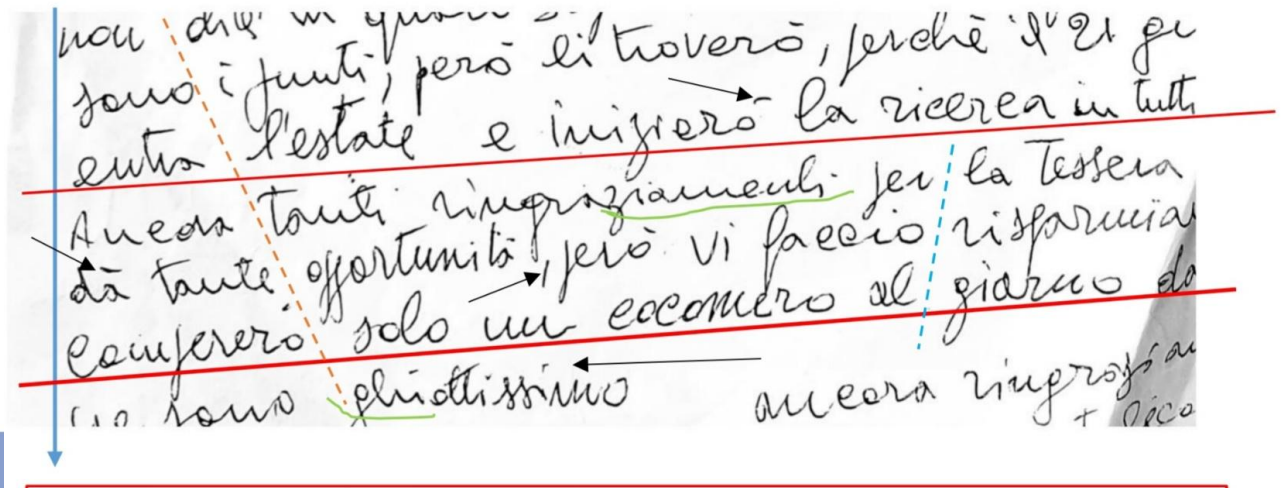 non
sono i punti, però li troverò, perchè il 21 gi
entra l'estate e inizierò la ricerca in tutti
Ancora tanti ringraziamenti per la Tessera
dà tante opportunità, però vi faccio risparmiar
Compererò solo un cocomero al giorno da
sono ghiottissimo ancora ringrazian